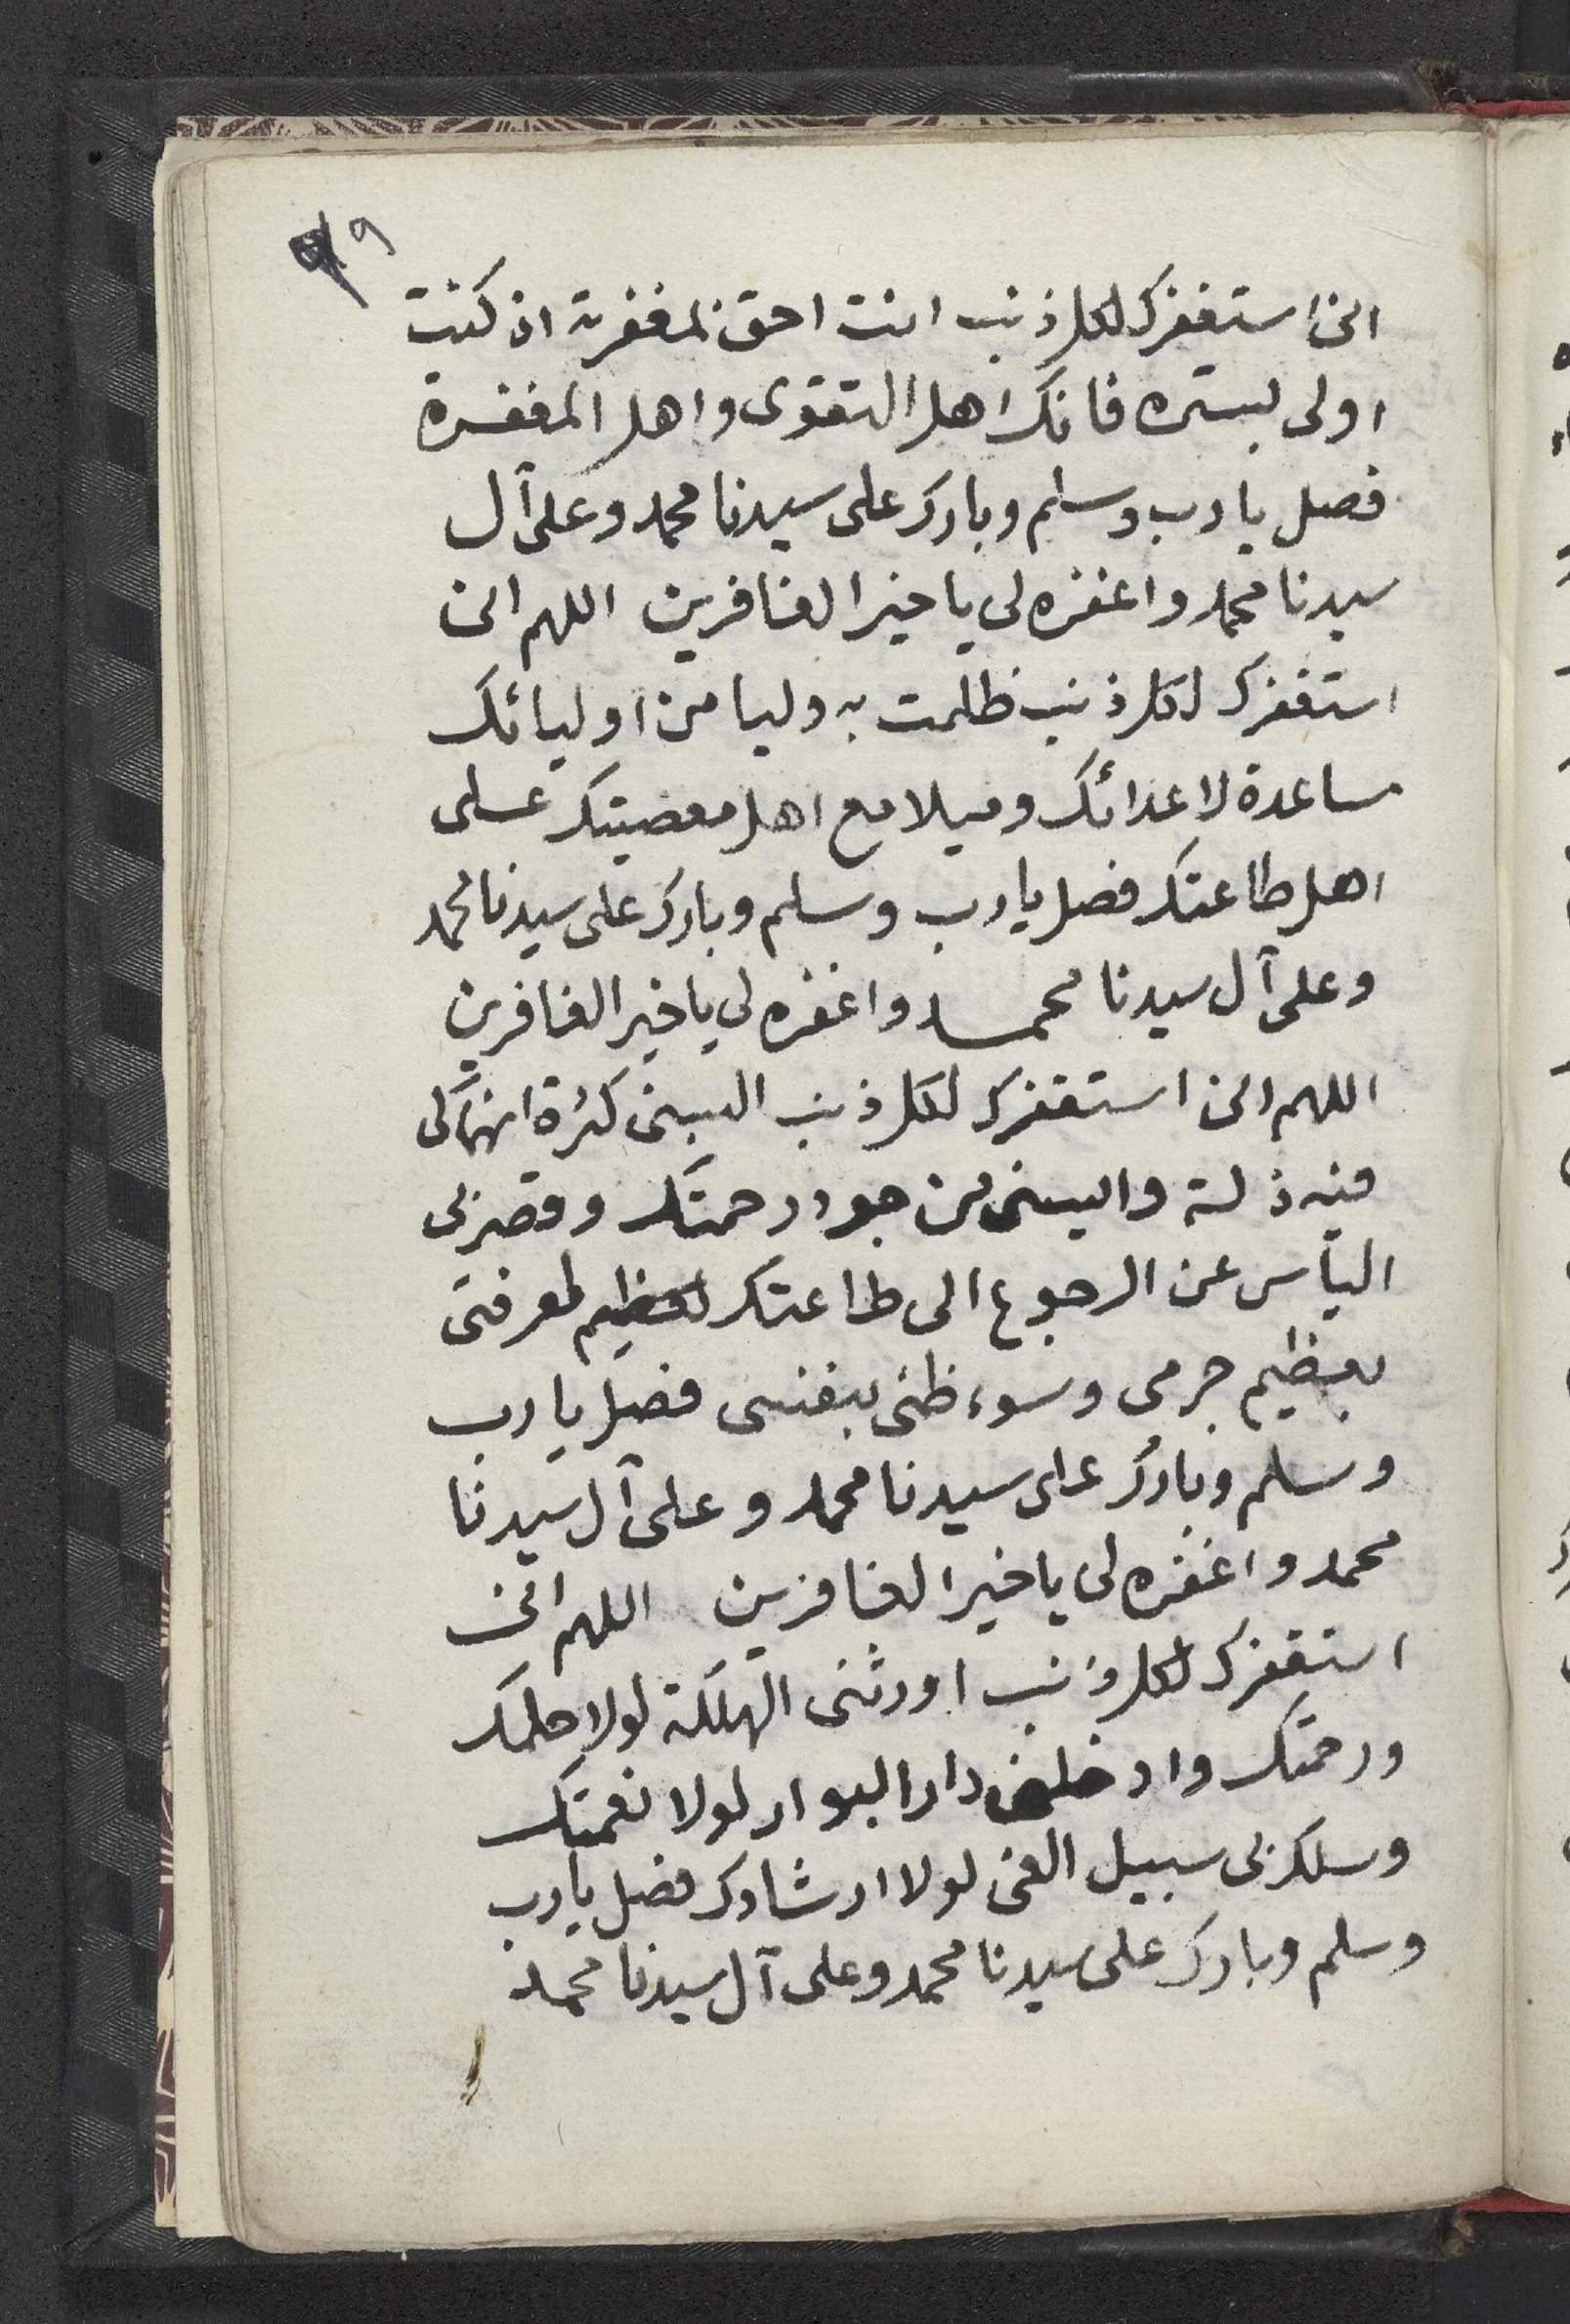 ٩
انى استغفرك لكل ذنب انت احق بمغفرته اذ كنت
اولى بستره فانك اهل التقوى واهل المغفرة
فصل يا رب وسلم وبارك على سيدنا محمد وعلى آل
سيدنا محمد واغفره لى يا خير الغافرين اللهم انى
استغفرك لكل ذنب ظلمت به وليا من اوليائك
مساعدة لاعدائك وميلا مع اهل معصيتك على
اهل طاعتك فصل يا رب وسلم وبارك على سيدنا محمد
وعلى آل سيدنا محمد واغفره لى يا خير الغافرين
اللهم انى استغفرك لكل ذنب البسنى كثرة انهماكى
فيه ذلة وايسنى من جود رحمتك وقصر بى
اليأس عن الرجوع الى طاعتك لمعرفتى
بعظيم جرمى وسوء ظنى بنفسى فصل يا رب
وسلم وبارك على سيدنا محمد وعلى آل سيدنا
محمد واغفره لى يا خير الغافرين اللهم انى
استغفرك لكل ذنب اورثنى الهلكة لولا حلمك
ورحمتك وادخلنى دار البوار لولا نعمتك
وسلك بى سبيل الغى لولا ارشادك فصل يا رب
وسلم وبارك على سيدنا محمد وعلى آل سيدنا محمد